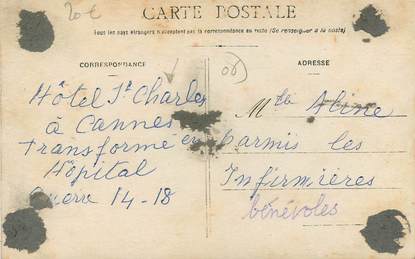 20€
CARTE POSTALE
Tout les pays étrangers n'acceptent pas la correspondance au recto (Se renseigner à la poste)
CORRESPONDANCE
Hôtel St Charles
à Cannes
transformé en
Hôpital
Guerre 14-18
(06)
ADRESSE
Aline
parmis les
Infirmières
bénévoles